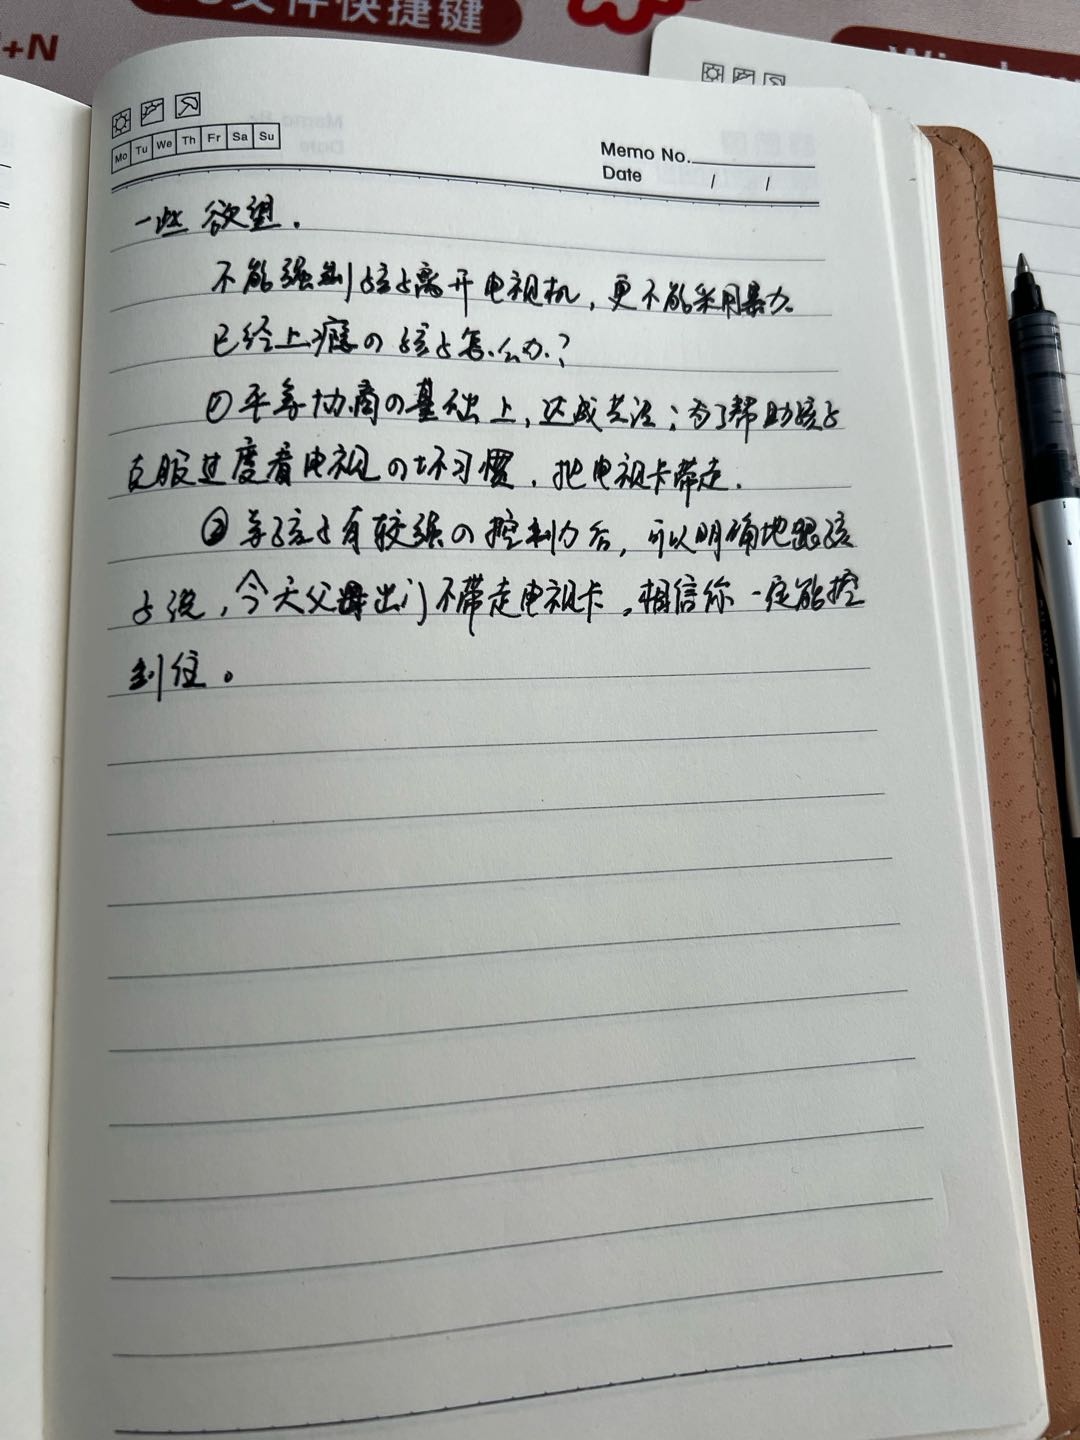 文件快捷键
+N
Mo Tu We Th Fr Sa Su
Memo No.
Date / /
一些欲望.
不能强制孩子离开电视机，更不能采用暴力。
已经上瘾の孩子怎么办？
①平等协商の基础上，达成共识；为了帮助孩子
克服过度看电视の坏习惯，把电视卡带走.
②等孩子有较强の控制力后，可以明确地跟孩
子说，今天父母出门不带走电视卡，相信你一定能控
制住。